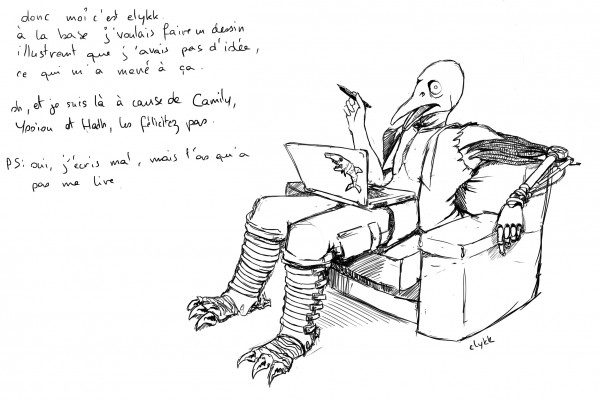 donc moi c'est elykk.
à la base j'voulais faire un dessin
illustrant que j'avais pas d'idée,
ce qui m'a mené à ça.
oh, et je suis là à cause de Camily,
Yssion et Hath, les félicitez pas.
PS: oui, j'écris mal, mais t'as qu'à
pas me lire.
elykk